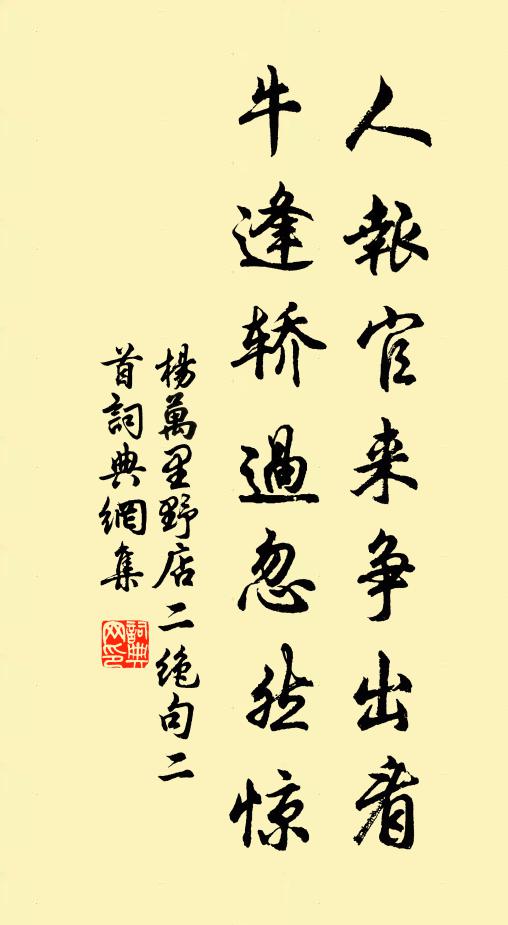 人報官来争出看
牛逢轿過忽然惊
楊萬里野店二绝句二
首詞典網集
詞典
网印